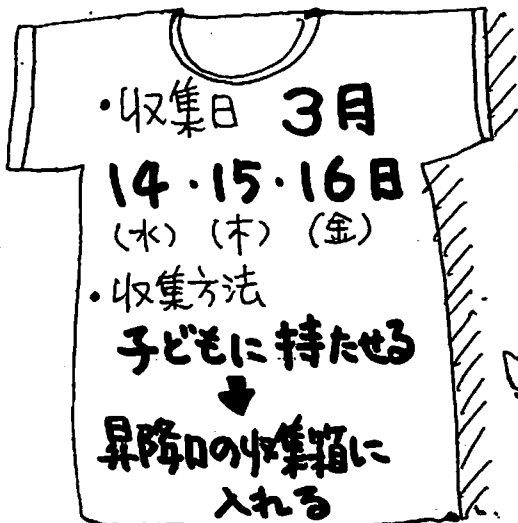 ・収集日 3月
14・15・16日
(水) (木) (金)
・収集方法
子どもに持たせる
↓
昇降口の収集箱に
入れる